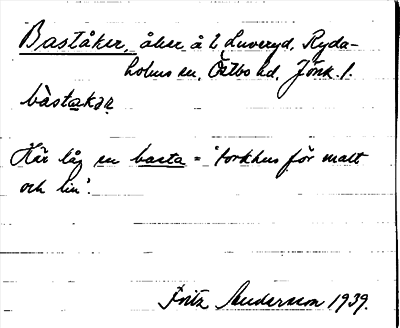 Baståker, åker å L. Luveryd, Ryda-
holms sn, Östbo hd, Jönk. l.
bàstakər
Här låg en basta = 'torkhus för malt
och lin'.
Fritz Andersson 1939.